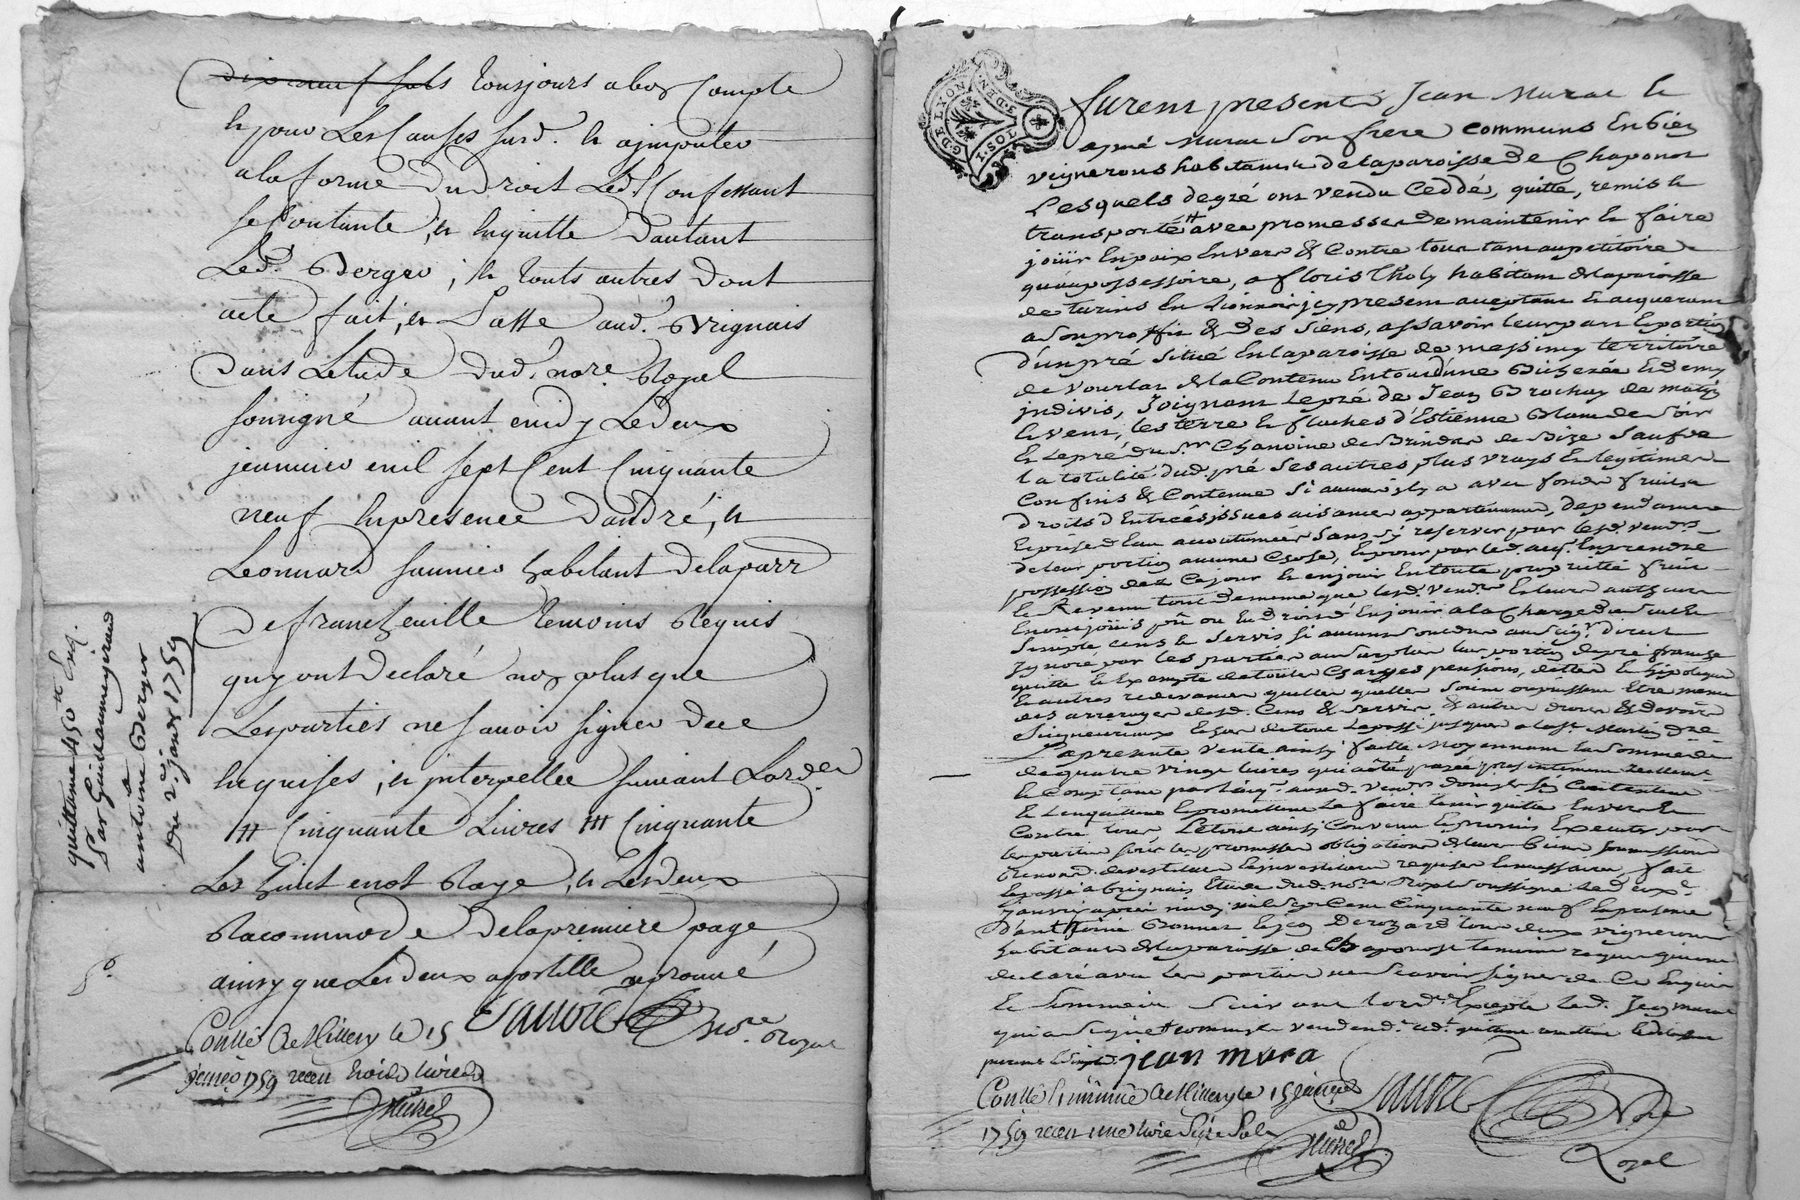 dix neuf sols tousjours a bon Compte
et pour Les Causes susd. et ajmputer
a la forme du droit Led. Confessant
se Contante, et en quitte d'autant
Led. Berger, et touts autres dont
acte fait, et Passé aud. Brignais
dans Letude dud. no.re Royal
sousigné avant midy Le deux
januier mil sept Cent Cinquante
neuf en presence d'andré, et
Leonnard saunier habitant de la parr
de francheuille temoins Requis
quy ont declaré non plus que
Les parties ne sauoir signer de ce
Enquises, et jnterpellee suiuant Lord.ce
# Cinquante Livres ### Cinquante
Les huict mot Raye, et Les deux
Racommodé de la premiere page
ainsy que Les deux apostille aprouué
Faure No.re Royal
Conllé a Millery le 15
januier 1759 receu trois livres
quittance 450 tt
Par Guillaume
a
antoine Berger
Du 2.e janv. 1759
G. DE LYON
1. SOL
furent presents Jean Murat et
aymé Murat son frere communs en biens
vignerons habitants de la paroisse de Chaponost
Lesquels de gré ont vendu Ceddé, quitté, remis et
transporté avec promesses de maintenir et faire
joüir en paix envers & Contre tous tant au petitoire
qu'au possessoire, a floris Tholy habitant de la paroisse
de turins en Lionnois jcy present acceptant et acquerant
a son proffit & des siens, assavoir leur part et portion
d'un pré situé en la paroisse de messimy territoire
de Vourlat de la Contenue en tout d'une Bicherée et demy
jndivis, joignant le pré de Jean Brochay de matin
et vent, les terre et de Estienne Blanc de soir
et le pré du sr. Chanoine de de Bize sauf de
la totalité dud. pré ses autres plus vrays et legitimes
Confins & Contenue si aucuns jl y a avec fonds fruits
droits d'Entrées issues aisances appartenances, dependances
et prise d'Eau accoutumées sans s'y reserver par lesd. vend.rs
de leur portion aucune Chose, et pour par led. acq. en prendre
possession dez Ce jour et en joüir en toute proprieté fruits
et Revenu tout de meme que lesd. vend.rs et leurs autheurs
en ont joüis pû ou eu droit d'en joüir a la Charge du
simple cens et servis si aucuns sont dus au seig.r direct
jgnoré par les parties au surplus leur portion de pré franche
quitte et exempte de toutes Charges pensions, dettes et hipoteques
et autres redevances quelles quelles soient ou puissent Etre meme
des arrerages desd. Cens & servis & autres droits & devoirs
seigneuriaux du passé jusques a la st. Martin
La presente vente ainsy faite moyennant la somme de
de quatre vingt livres qui a été payée presentement reellement
et Comptant par led. acq. aud. vend.rs dont
& l'en quittent et promettent la faire tenir quitte envers &
Contre tous, Le tout ainsy Convenu et promis executer par
les parties sous les promesses obligations de leurs biens soumissions
renon.on devestiture et investiture requises et necessaires fait
et passé a Brignais Etude dud. no.re Royal soussigné le deuxe.
janvier apres midy mil sept Cent Cinquante neuf en presence
d'anthoine Bonnet et Derozard tous deux vignerons
habitants de la paroisse de Chaponost temoins requis qui ont
declaré avec les parties ne Scavoir signer de Ce enquis
et sommés suivant l'ord.ce excepté led. Jean Murat
qui a signé
jean mura
Conllé a Millery le 15 janvier
1759 receu une livre Seize Sols
Faure No.re
Royal